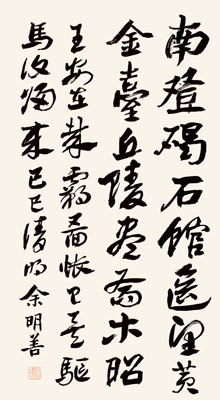 南登碣石館遙望黃
金臺丘陵盡喬木昭
王安在哉霸圖悵已矣驅
馬復歸來己巳清明余明善